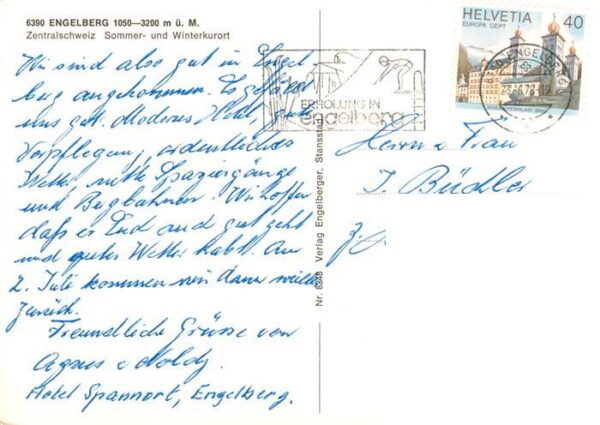 6390 ENGELBERG 1050—3200 m ü. M.
Zentralschweiz Sommer- und Winterkurort
Wir sind also gut in Engel
berg angekommen. Es gefällt
uns gut. Modernes Hotel, gute
Verpflegung, ordentliches
Wetter, nette Spaziergänge
und Bergbahnen. Wir hoffen
daß es Euch auch gut geht
und gutes Wetter habt. Am
2. Juli kommen wir dann wieder
zurück.
Freundliche Grüsse von
Agnes + Noldy
Hotel Spannort, Engelberg.
Nr. 8348 Verlag Engelberger, Stansstad
ERHOLUNG IN
engelberg
HELVETIA 40
EUROPA CEPT
6390 ENGELBERG
Herrn + Frau
J. Büchler